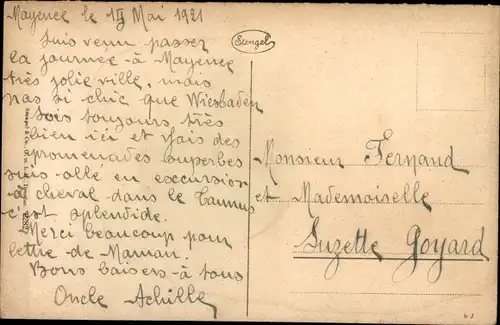 Mayence le 14 Mai 1921
Suis venu passer
la journée à Mayence
très jolie ville, mais
pas si chic que Wiesbaden
Suis toujours très
bien ici et fais des
promenades superbes
suis allé en excursion
à cheval dans le Taunus
c'est splendide.
Merci beaucoup pour
lettre de Maman.
Bons baisers à tous
Oncle Achille
Stengel
Monsieur Fernand
et Mademoiselle
Suzette Goyard
Stengel & Co.